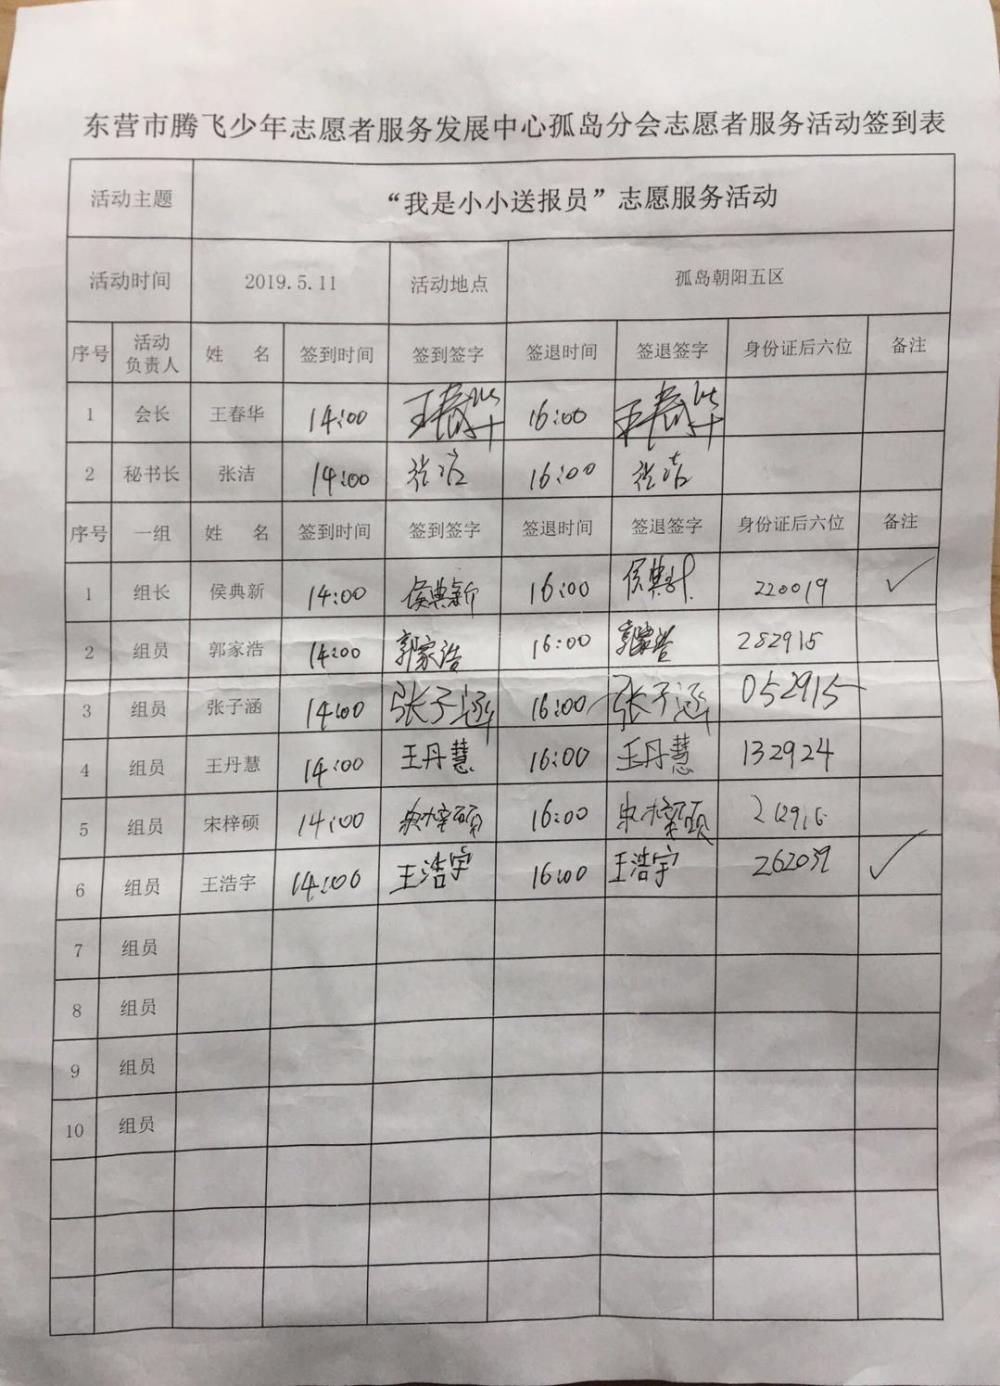 东营市腾飞少年志愿者服务发展中心孤岛分会志愿者服务活动签到表
活动主题 “我是小小送报员”志愿服务活动
活动时间 2019.5.11 活动地点 孤岛朝阳五区
序号 活动负责人 姓 名 签到时间 签到签字 签退时间 签退签字 身份证后六位 备注
1 会长 王春华 14:00 王春华 16:00 王春华
2 秘书长 张洁 14:00 张洁 16:00 张洁
序号 一组 姓 名 签到时间 签到签字 签退时间 签退签字 身份证后六位 备注
1 组长 侯典新 14:00 侯典新 16:00 侯典新 220019 ✓
2 组员 郭家浩 14:00 郭家浩 16:00 郭家浩 282915
3 组员 张子涵 14:00 张子涵 16:00 张子涵 052915
4 组员 王丹慧 14:00 王丹慧 16:00 王丹慧 132924
5 组员 宋梓硕 14:00 宋梓硕 16:00 宋梓硕
6 组员 王浩宇 14:00 王浩宇 16:00 王浩宇 262039 ✓
7 组员
8 组员
9 组员
10 组员